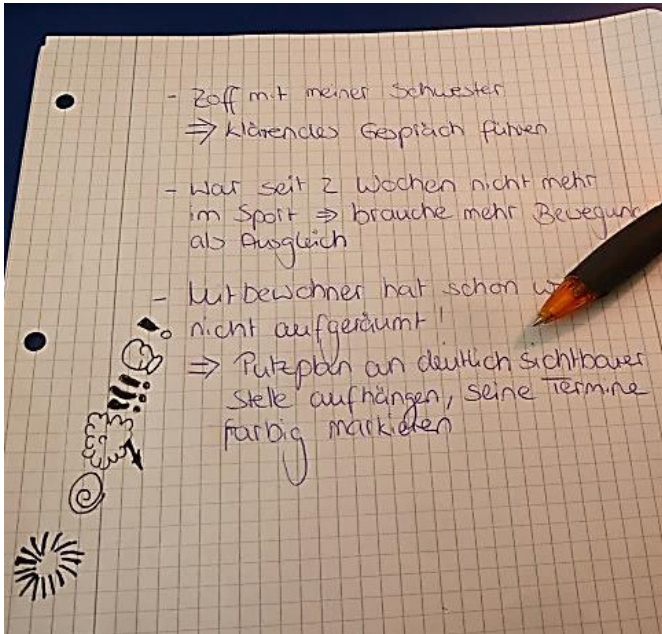 - Zoff mit meiner Schwester
⇒ klärendes Gespräch führen
- War seit 2 Wochen nicht mehr
im Sport ⇒ brauche mehr Bewegung
als Ausgleich
- Mitbewohner hat schon
nicht aufgeräumt!
⇒ Putzplan an deutlich sichtbarer
Stelle aufhängen, seine Termine
farbig markieren